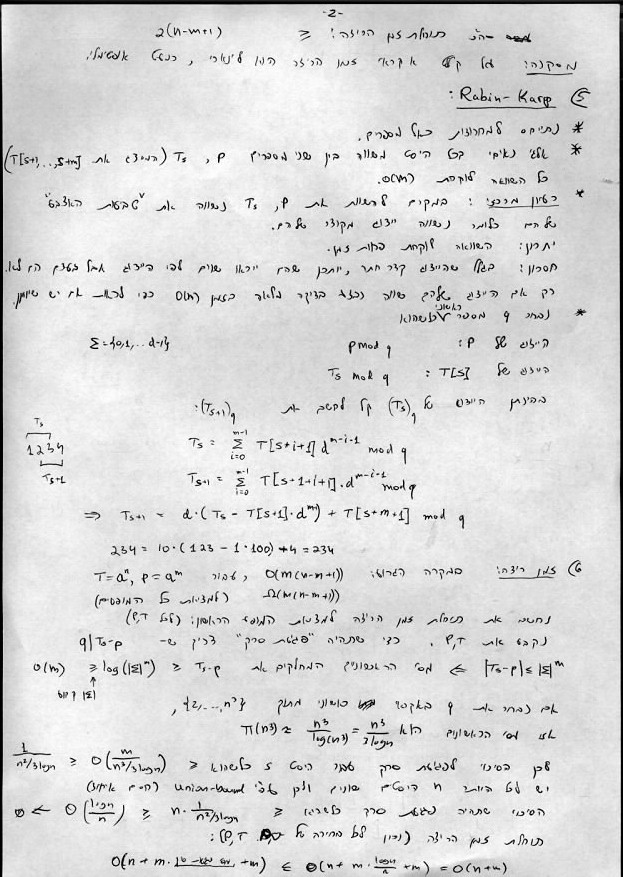 -2-
תוחלת זמן הריצה: ≤ 2(n-m+1)
מסקנה: על קלט אקראי זמן הריצה הוא לינארי, כמעט אופטימלי.
5) Rabin-Karp:
* נתייחס למחרוזות כאל מספרים.
* אלג' נאיבי בכל היסט משווה בין שני מספרים P, Ts (המייצג את T[s+1,..,s+m])
כל השוואה לוקחת O(m).
* רעיון מרכזי: במקום להשוות את P, Ts נשווה את "טביעות האצבע"
שלהם כלומר נשווה ייצוג מקוצר שלהם.
יתרון: השוואה לוקחת פחות זמן.
חסרון: בגלל שהייצוג קצר יותר, ייתכן שהם ייראו שווים לפי הייצוג אבל בעצם הם לא.
רק אם הייצוג שלהם שווה נבצע בדיקה מלאה בזמן O(m) כדי לראות אם יש שוויון.
* נבחר q מספר ראשוני כלשהוא
הייצוג של P: P mod q Σ={0,1,..d-1}
הייצוג של T[s]: Ts mod q
בהינתן הייצוג של (Ts)q קל לחשב את (Ts+1)q:
Ts = Σ_{i=0}^{m-1} T[s+i+1] d^{m-i-1} mod q
Ts 1234 Ts+1
Ts+1 = Σ_{i=0}^{m-1} T[s+1+i+1]·d^{m-i-1} mod q
⇒ Ts+1 = d·(Ts - T[s+1]·d^{m-1}) + T[s+m+1] mod q
234 = 10·(123 - 1·100)+4 = 234
6) זמן ריצה: במקרה הגרוע: O(m(n-m+1)), עבור T=a^n, P=a^m
Ω(m(n-m+1)) (למציאת כל המופעים)
נחשב את תוחלת זמן הריצה למציאת המופע הראשון: (לכל P,T)
נקבע את P,T. כדי שתהיה "פגיעת סרק" צריך ש- q|Ts-P
|Ts-P| ≤ |Σ|^m ⇐ מס' הראשוניים המחלקים את Ts-P ≤ log(|Σ|^m) ≤ O(m)
↑ |Σ| קבוע
אם נבחר את q באקראי כראשוני מתוך {2,...,n³},
אז מס' הראשונים הוא π(n³) ≈ n³/log(n³) = n³/3logn
לכן הסיכוי לפגיעת סרק עבור היסט s כלשהוא ≤ O(m/n³/3logn) ≤ 1/n²/3logn
יש לכל היותר n היסטים שונים ולכן עפ"י union-bound (חסם איחוד)
הסיכוי שתהיה פגיעת סרק כלשהיא ≤ n·1/n²/3logn ≤ Θ(logn/n) → 0
תוחלת זמן הריצה (נכון לכל בחירה של P,T):
O(n+m· +m) ∈ Θ(n+m·logn/n+m) = O(n+m)